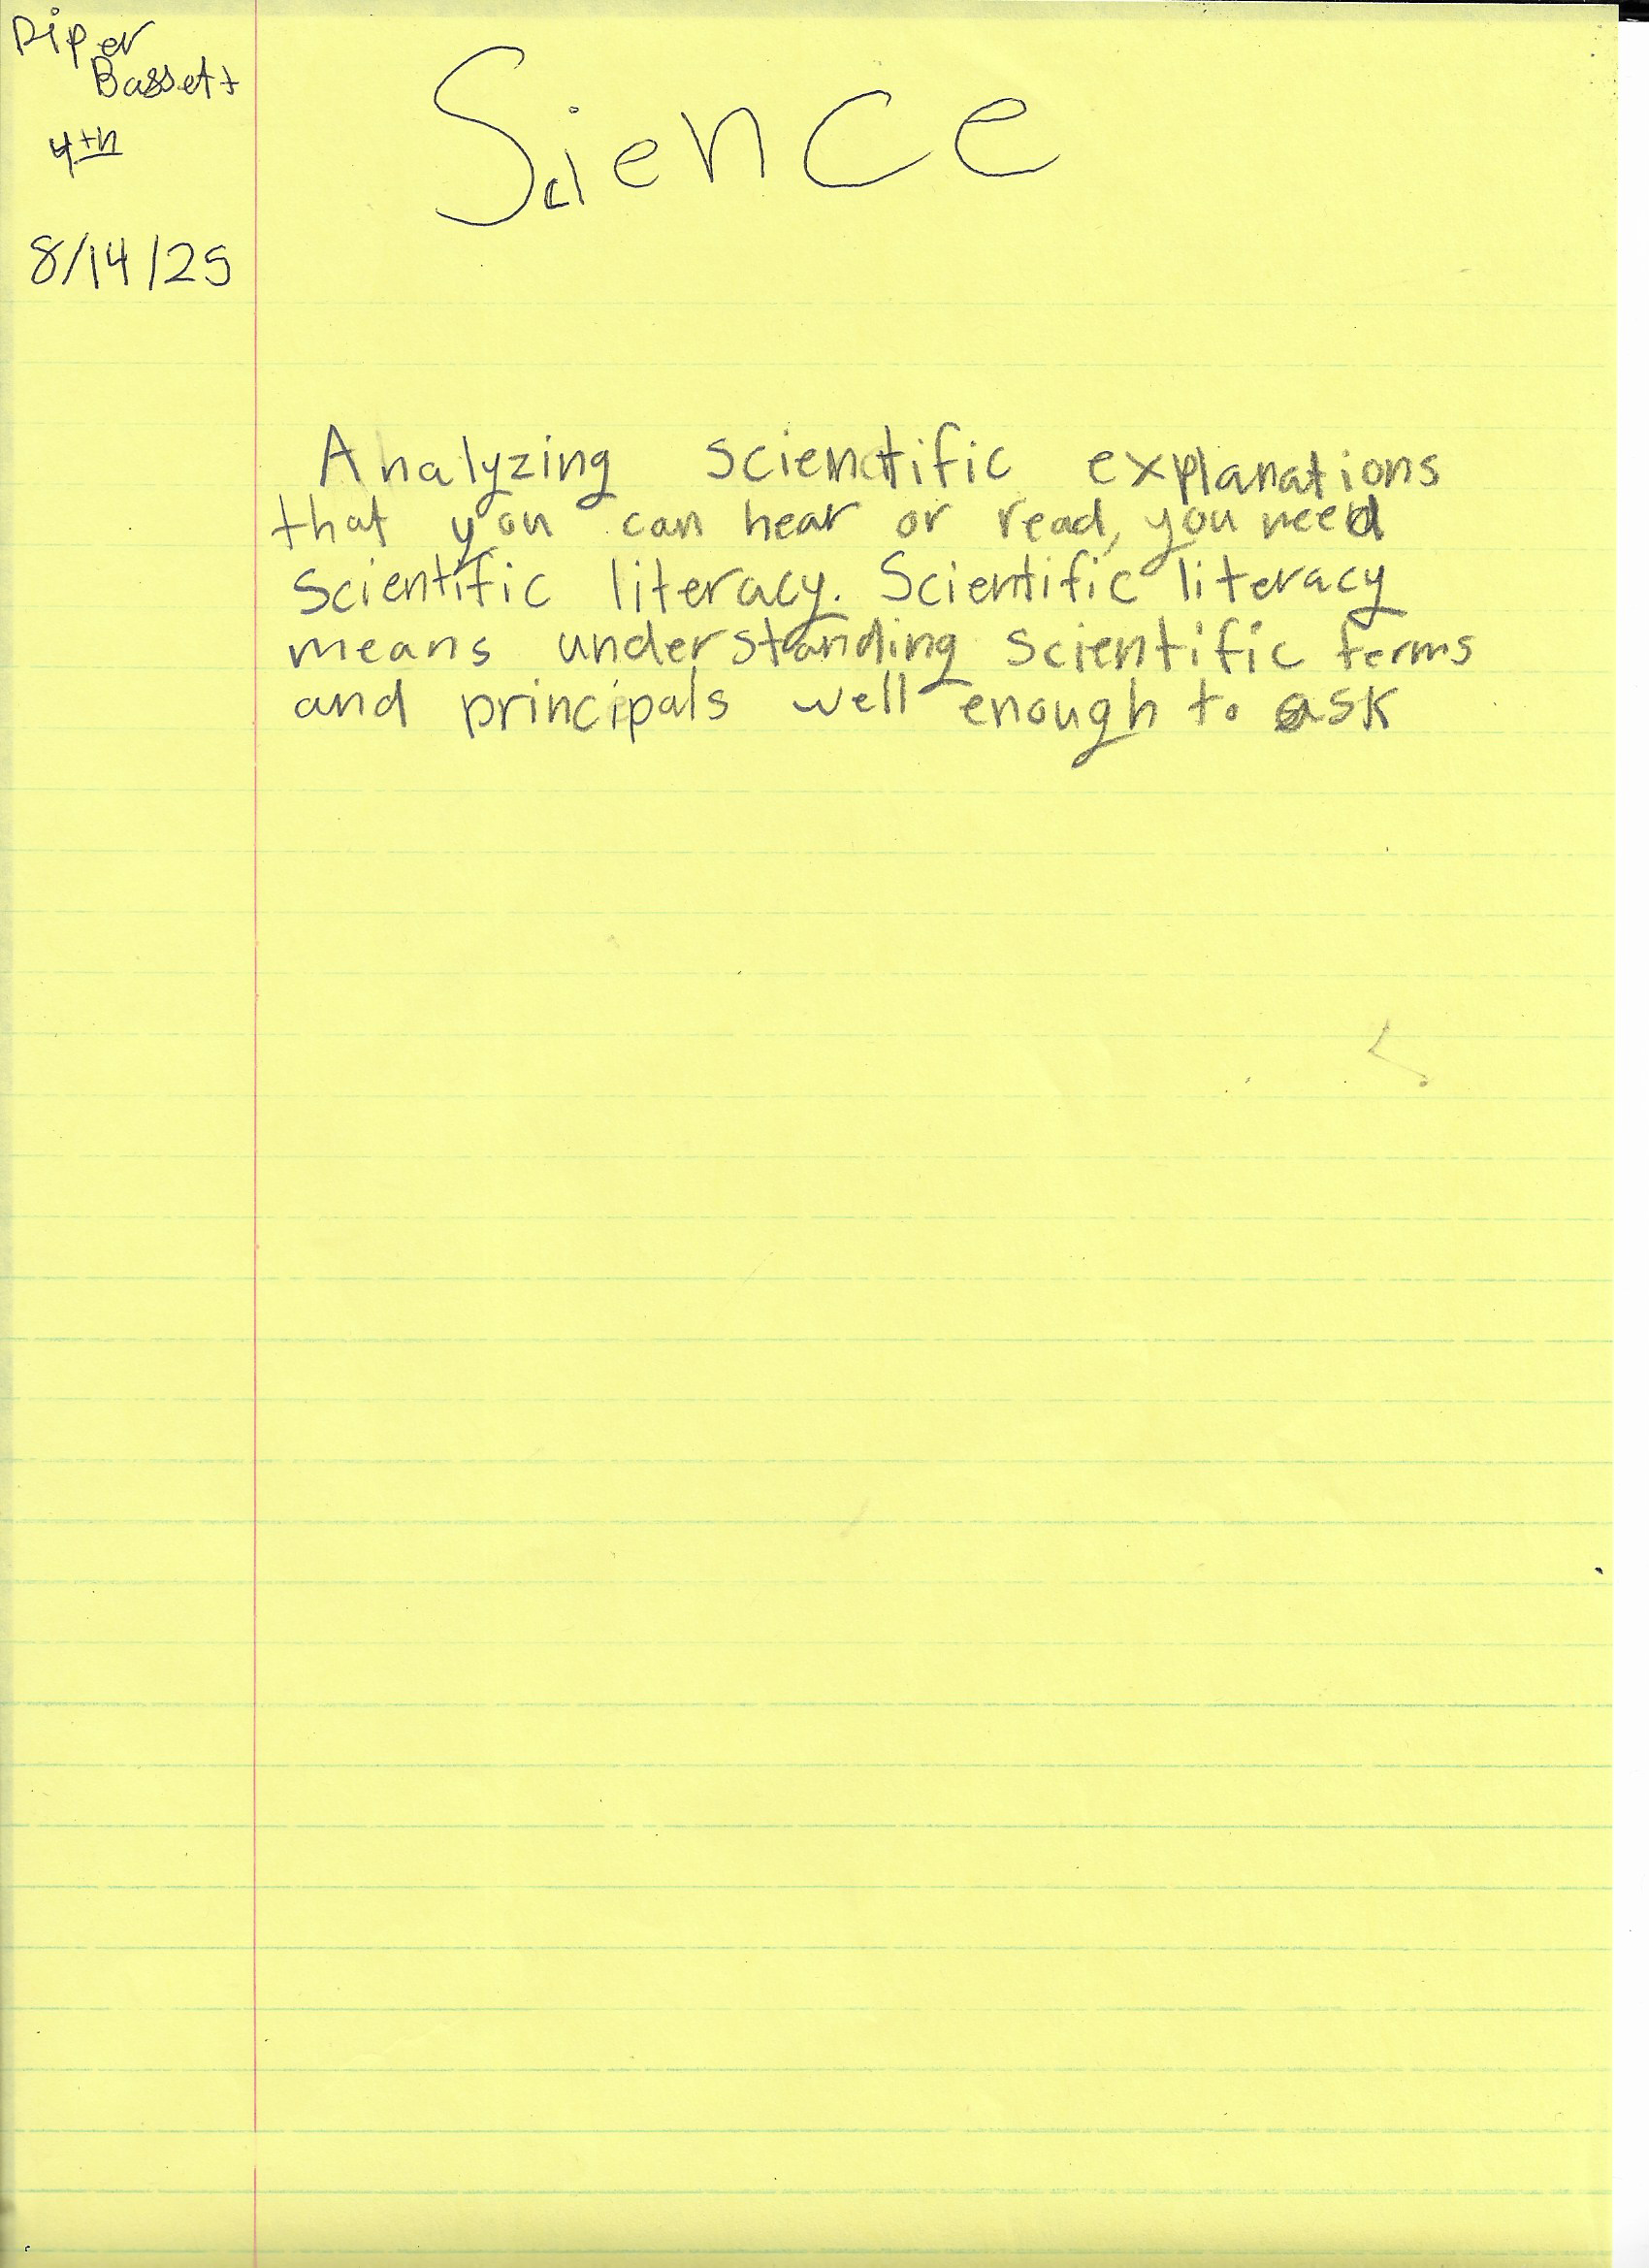 Piper
Bassett
4th
8/14/25
Science
Analyzing scientific explanations
that you can hear or read, you need
scientific literacy. Scientific literacy
means understanding scientific terms
and principals well enough to ask